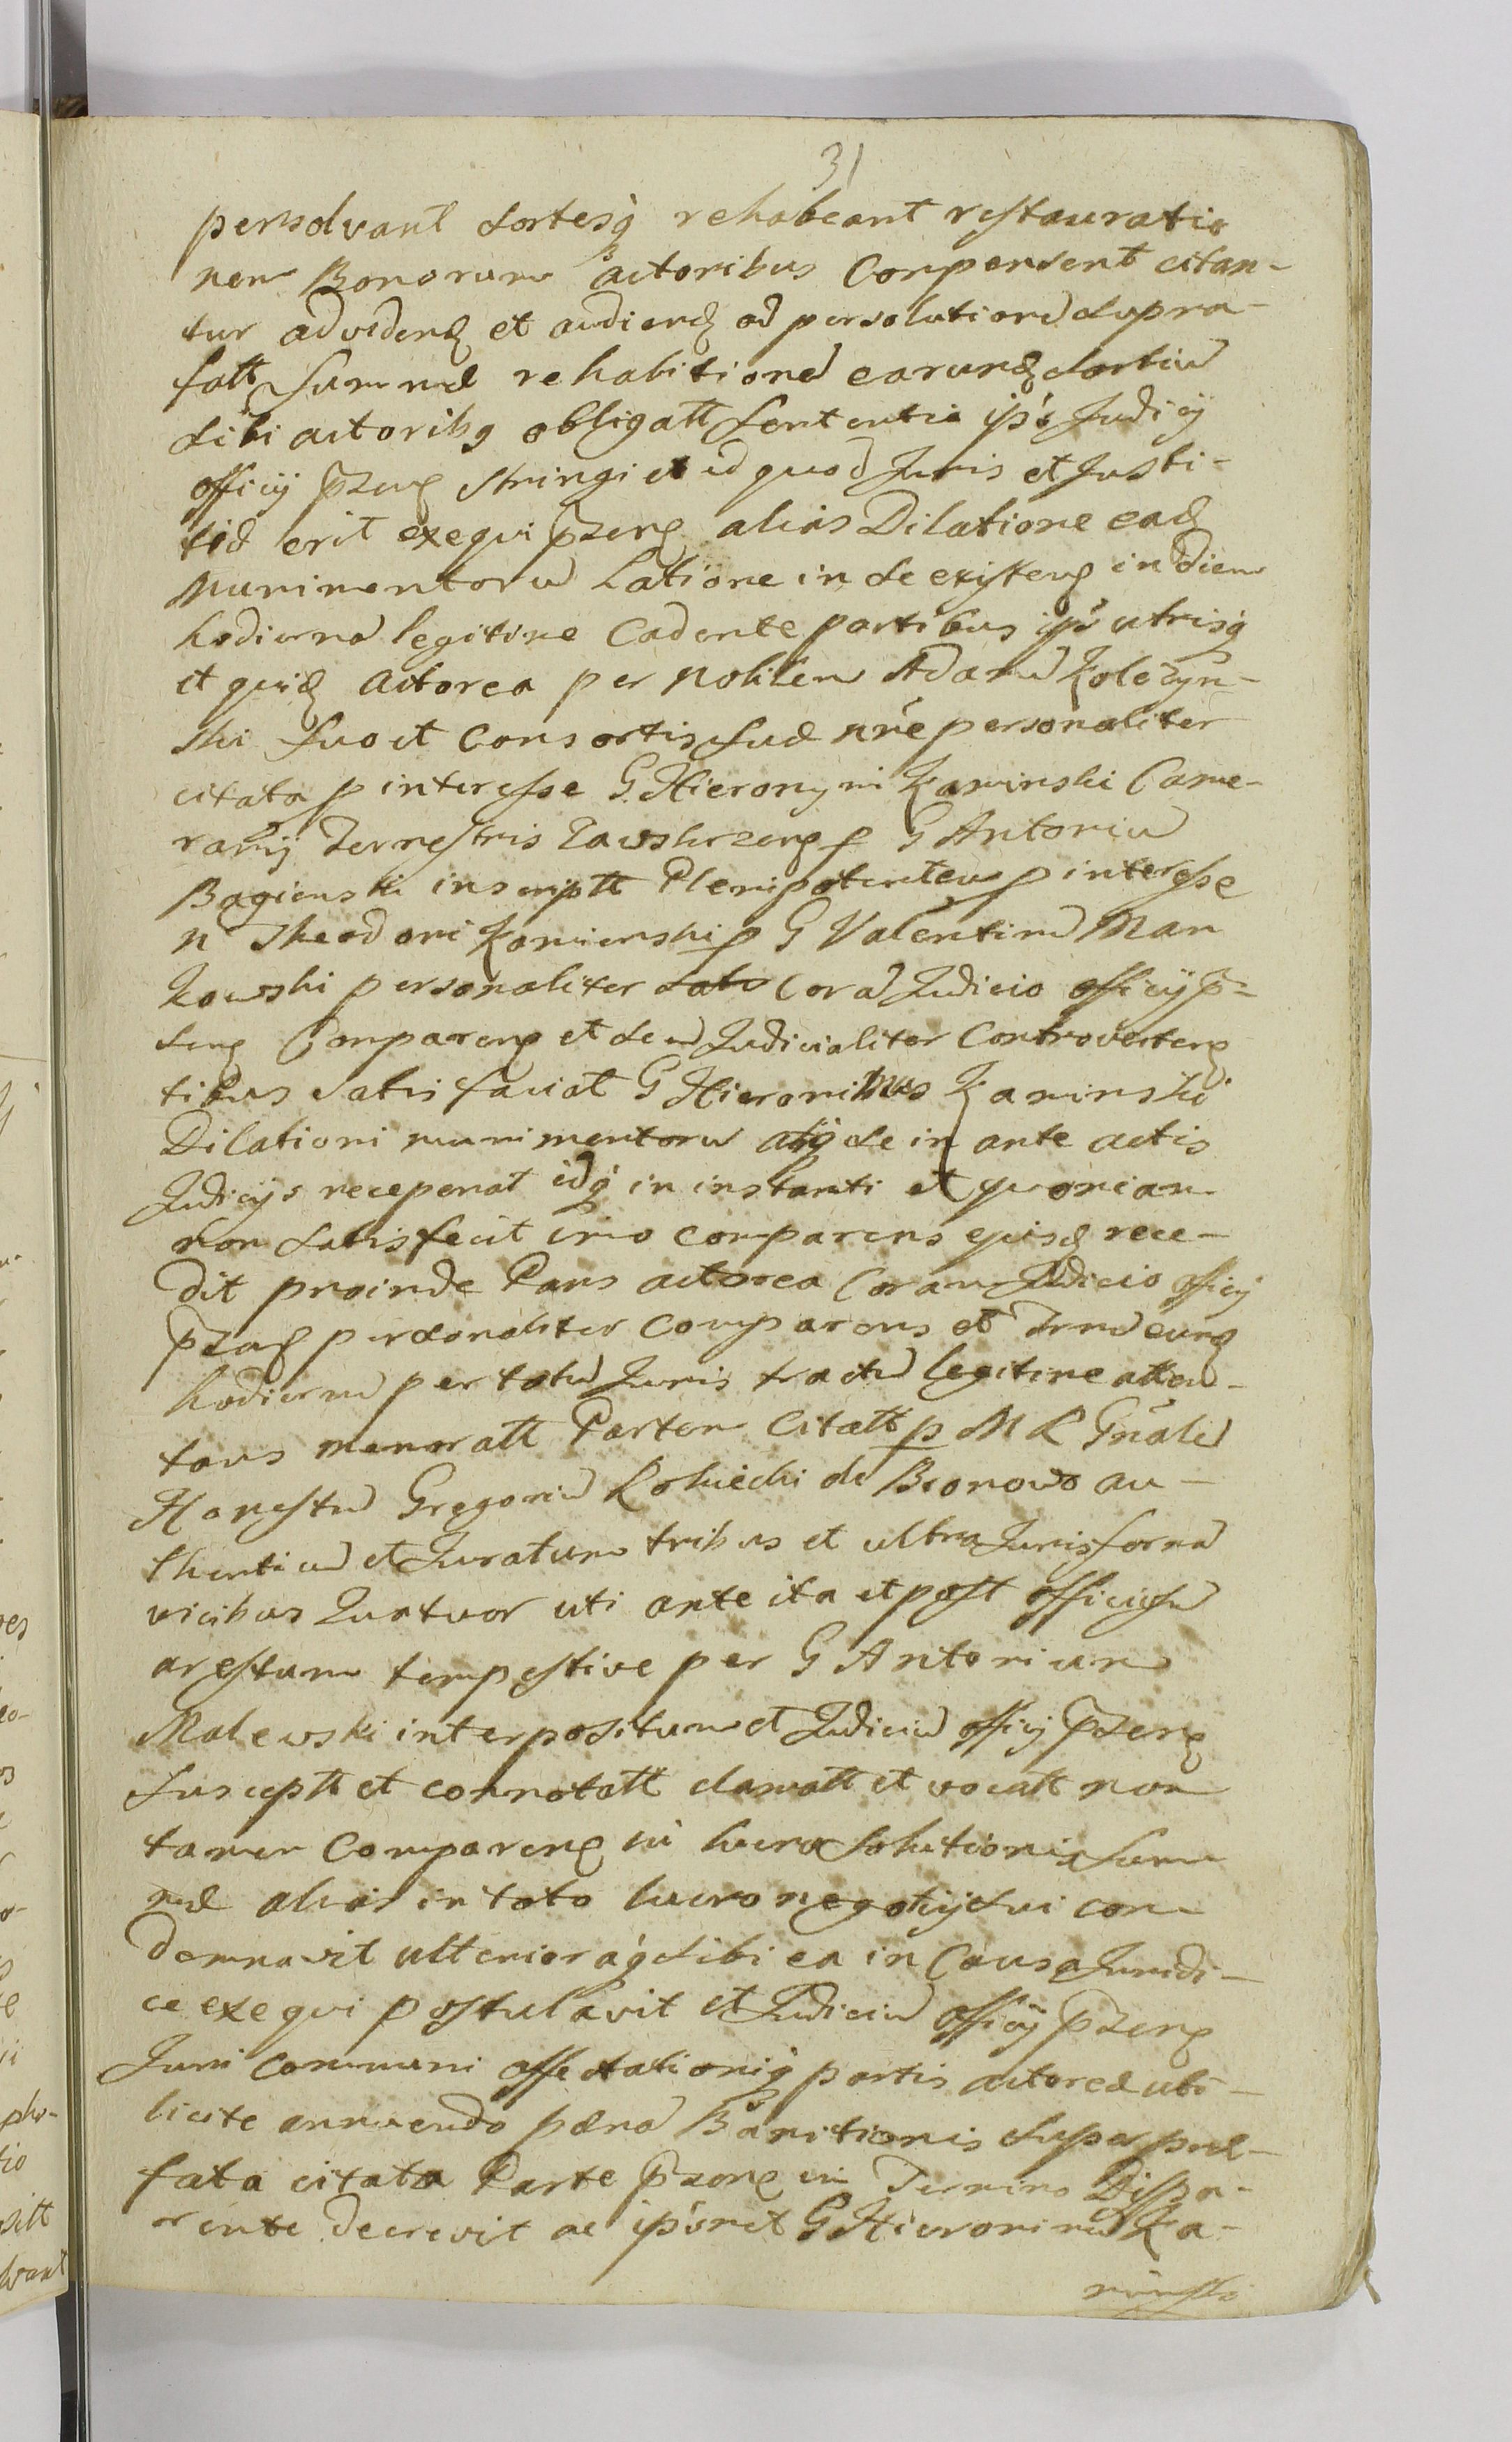 31
persolvant sortesq rehabeant restauratio
nem Bonorum actoribus Compensent citan-
tur ad videnđ et audienđ ad persolutionē supra-
fatt summæ rehabitionē earunđ sortiū
sibi actoribq obligatt sententia ip̃s Judicÿ
officÿ p̃zens stringi et id quod Juris et Justi-
tiæ erit exequi p̃zens alias Dilatione eađ
munimentorū Latione in se existens in diem
hodiernā legitime Cadente partibus ip̃s utrisq
et quiđ actorea per nobilem Adamū Kolczyn-
ski suo et Consortis suæ nr̃e personaliter
citata p interesse G. Hieronymi Kaminski Came-
rarÿ Terrestris Zawskrzens p G Antoniū
Bagienski inscriptt Plenipotentem p interesse
N Theodori Kamienski p G Valentinū Man
kowski personaliter Corā Judicio officÿ p̃-
sens Comparens et se ā Judicialiter Controverten
tibus satisfaciat G Hieronimus Kaminski
Dilationi munimentorū in ante actis
Judicÿs receperat idq in instanti et quoniam
non satisfecit imo comparens quisđ rece-
dit proinde Pars actorea Coram Judicio officÿ
p̃zens personaliter Comparens et Trnū eunđ
hodiernū per totū Juris tractū legitime atten-
tans memoratt Partem Citatt p M R Gnãlē
Honestū Gregoriū Rokicki de Bronowo au-
thenticū et Juratum tribus et ultra Juris formā
vicibus Quatuor uti ante ita et post
arestum tempestive per G Antonium
Malewski interpositum et Judiciū officÿ p̃zens
susceptt et connotatt clamatt et vocatt non
tamen Comparens in lucro solutionis sum
mæ alias in toto lucro negotÿ sui con
demnavit ulterioraq sibi ea in Causa Juridi-
ce exequi postulavit et Judiciū officÿ p̃zens
Juri communi affectationiq partis actoreæ
licite annuendo pænā Banitionis super præ-
fata citata Parte p̃zens in Termino Dispa-
rente decrevit ac ip̃smet G Hieronimū Ka-
minski